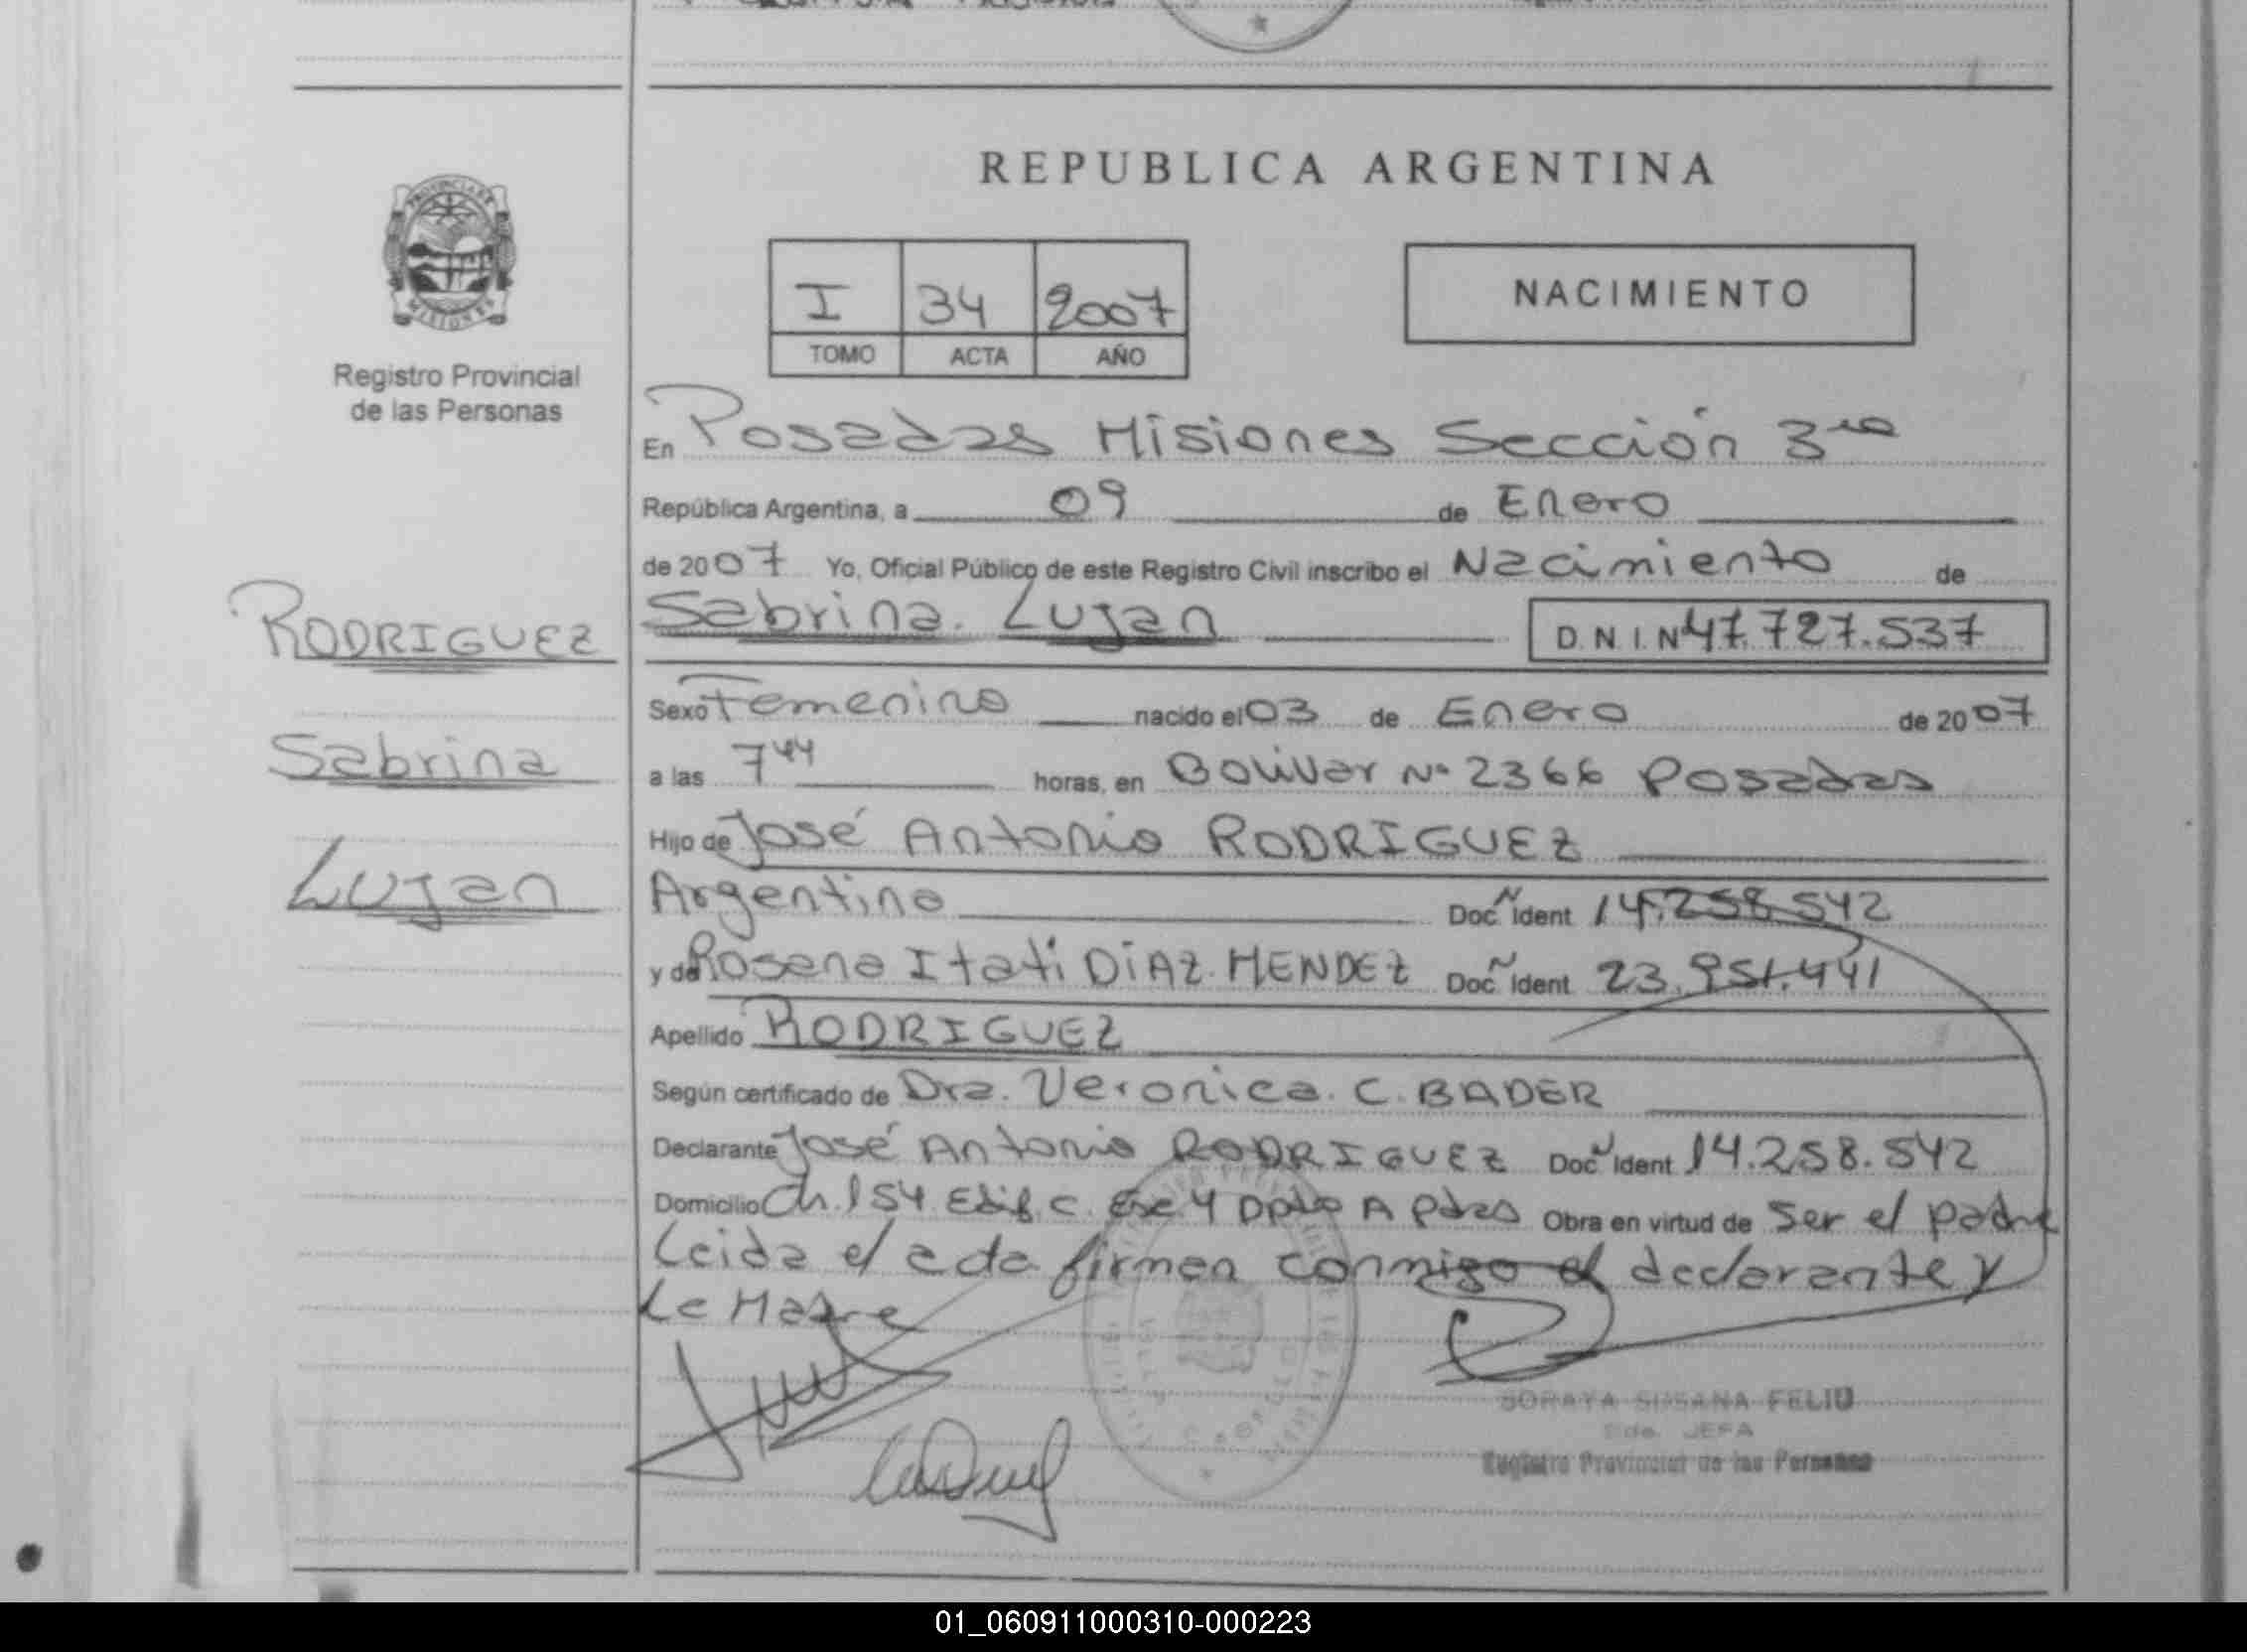 REPUBLICA ARGENTINA
PROVINCIA DE
MISIONES
Registro Provincial
de las Personas
I 34 2007
TOMO ACTA AÑO
NACIMIENTO
En Posadas Misiones Sección 3ra
República Argentina, a 09 de Enero
de 2007 Yo, Oficial Público de este Registro Civil inscribo el Nacimiento de
Sabrina Lujan D.N.I.N 47.727.537
RODRIGUEZ
Sabrina
Lujan
Sexo Femenino nacido el 03 de Enero de 2007
a las 7 44 horas, en Bolivar Nº 2366 Posadas
Hijo de José Antonio RODRIGUEZ
Argentino Doc. Ident 14.258.542
y de Rosana Itati DiAZ MENDEZ Doc. Ident 23.951.441
Apellido RODRIGUEZ
Según certificado de Dra. Veronica C. BADER
Declarante José Antonio RODRIGUEZ Doc. Ident 14.258.542
Domicilio Ch. 154 Edif. C. Esc 4 Dpto A Pdas Obra en virtud de ser el padre
Leida el acta firman conmigo el declarante y
La Madre
SORAYA SUSANA FELIU
JEFA
Registro Provincial de las Personas
01_060911000310-000223